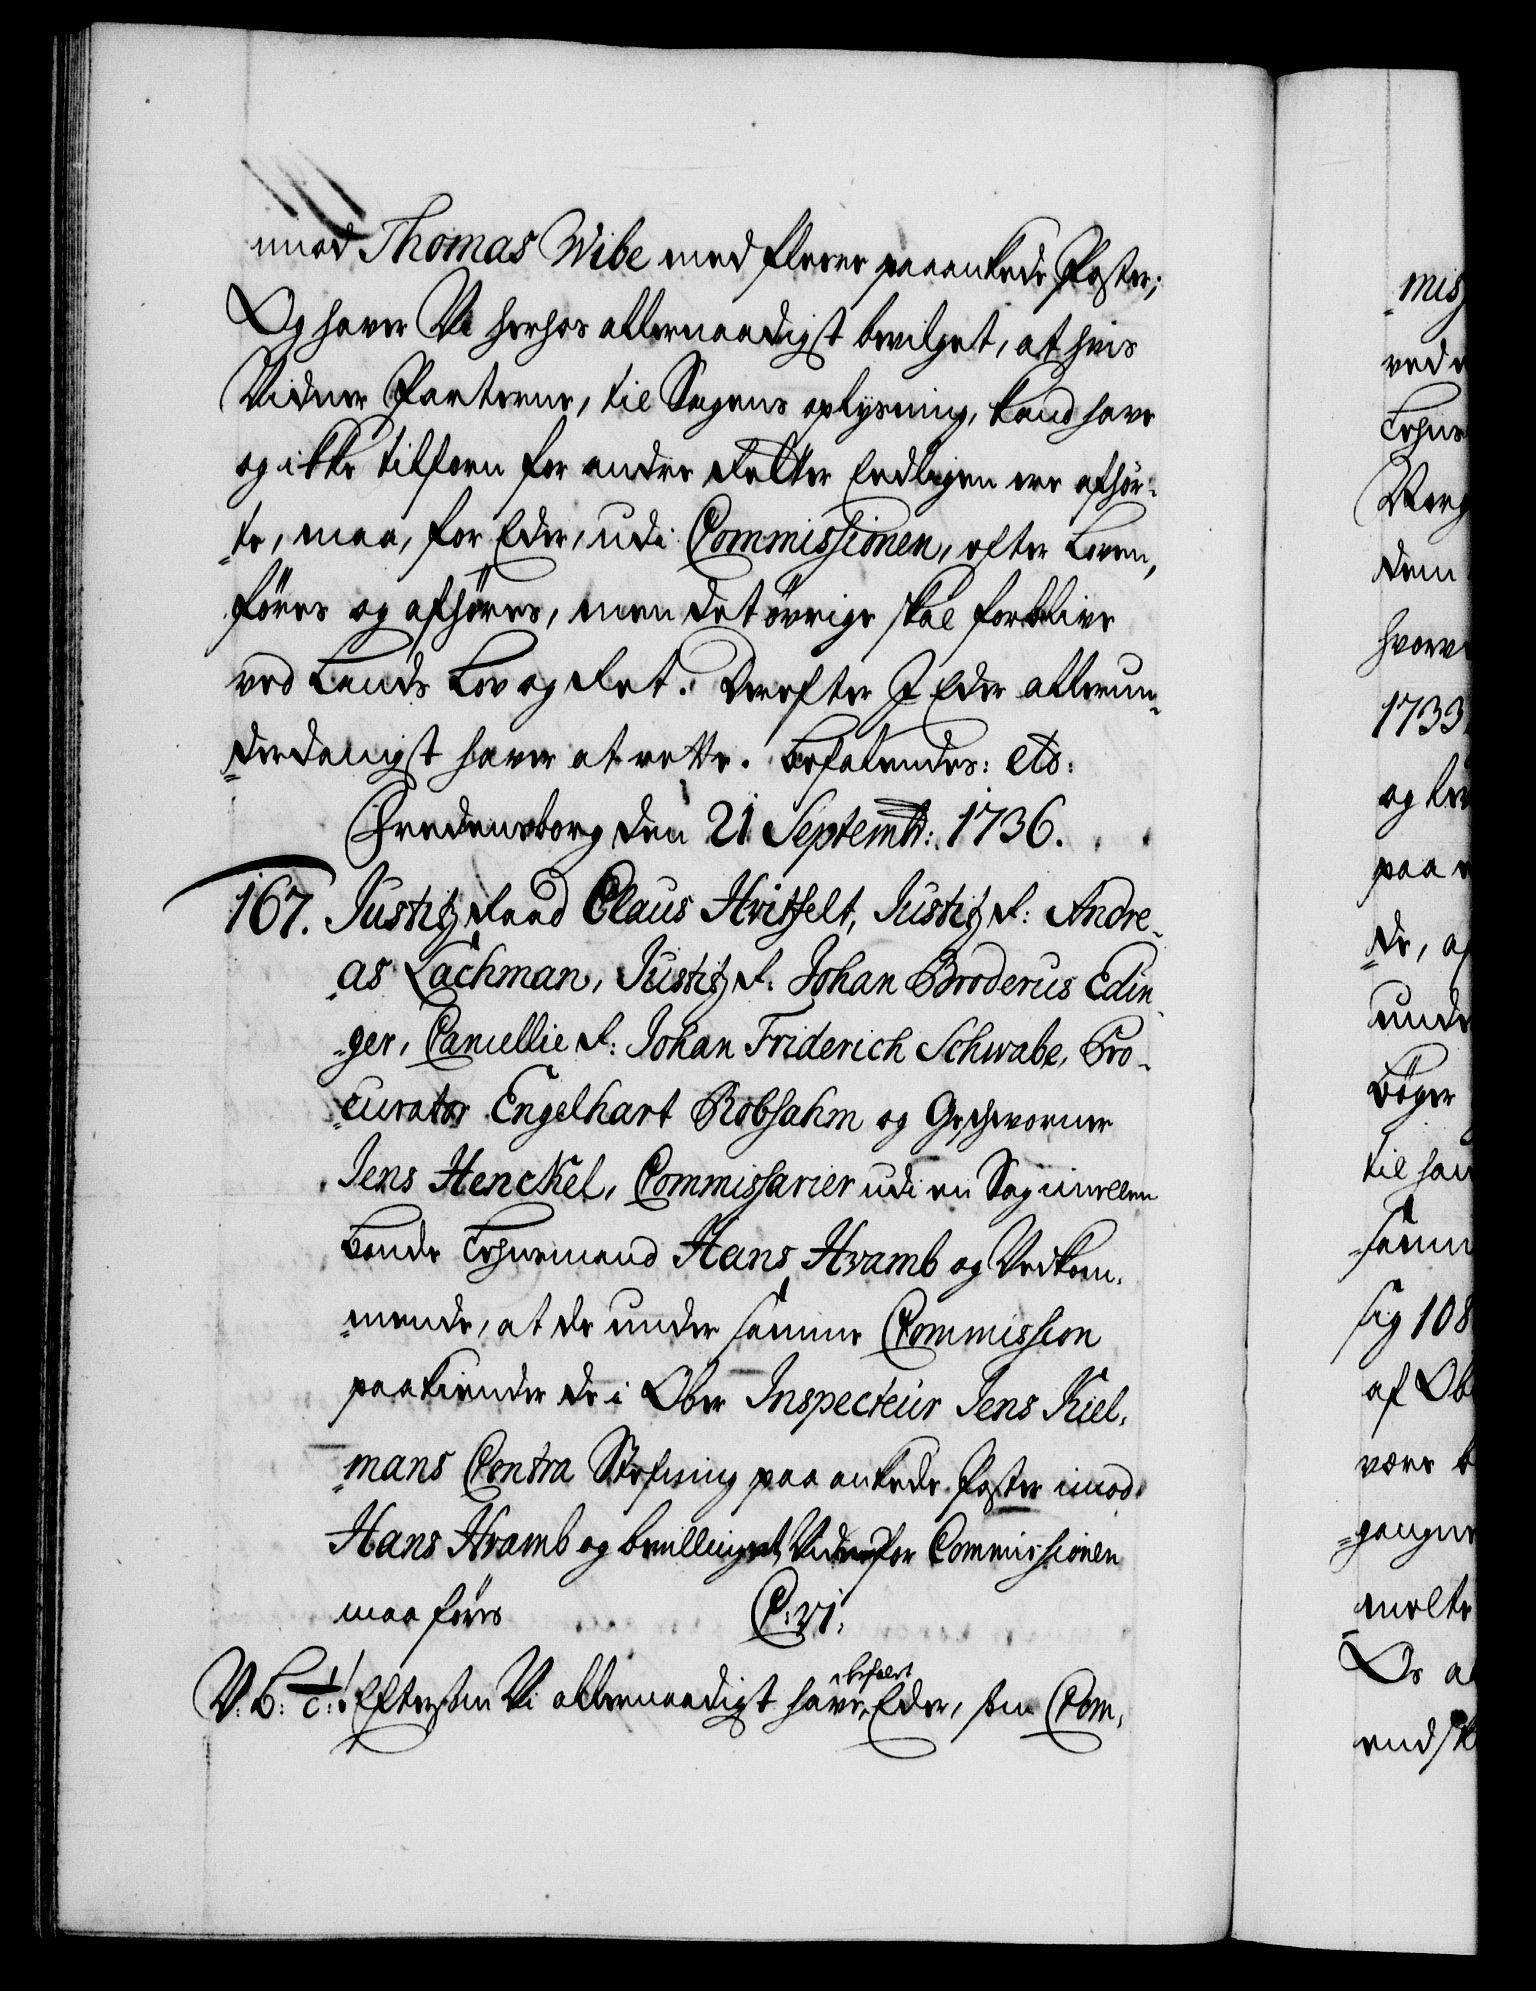 imod Thomas Wibe med fleere paaankede Poster;
Og haver Vi herhos allernaadigst bevilget, at hvis
Vidner Parterne, til Sagens oplysning, kand have
og ikke tilforn for andre Retter Eedligen ere afhör-
te, maa, for Eder, udi Commissionen, efter Loven,
föres og afhöres, men det övrige skal forblive
ved Lands Lov og Ret. Derefter I Eder allerun-
derdanigst haver at rette. Befalendes: etc:
Fredensborg den 21 Septembr: 1736.
167. Justitz Raad Claus Hvitfelt, Justitz R: Andre-
as Lachman, Justitz R. Johan Broderus Edin-
ger, Cancellie R: Johan Friderich Schwabe, Pro-
curator Engelhart Robsahm og Geschworner
Jens Henckel, Commissarier udi en Sag imellem
Bonde Lehnsmand Hans Hramb og Vedkom-
mende, at de under samme Commission
paakiender de i Ober Inspecteur Jens Kiel-
mans Contra Stefning paa ankede Poster imod
Hans Hramb og bevillinget, Vidner for Commissionen
maa föres C: vj:
V. G: T: c: ! Eftersom Vi allernaadigst have befalet Eder, som Com-
mis
ved
Lehns
Werg
dem
hvorv
1733
og lev
paa
de, af
unde
Böger
til han
samm
sig 108
af Obe
være b
gangne
melte
Os al
end sk